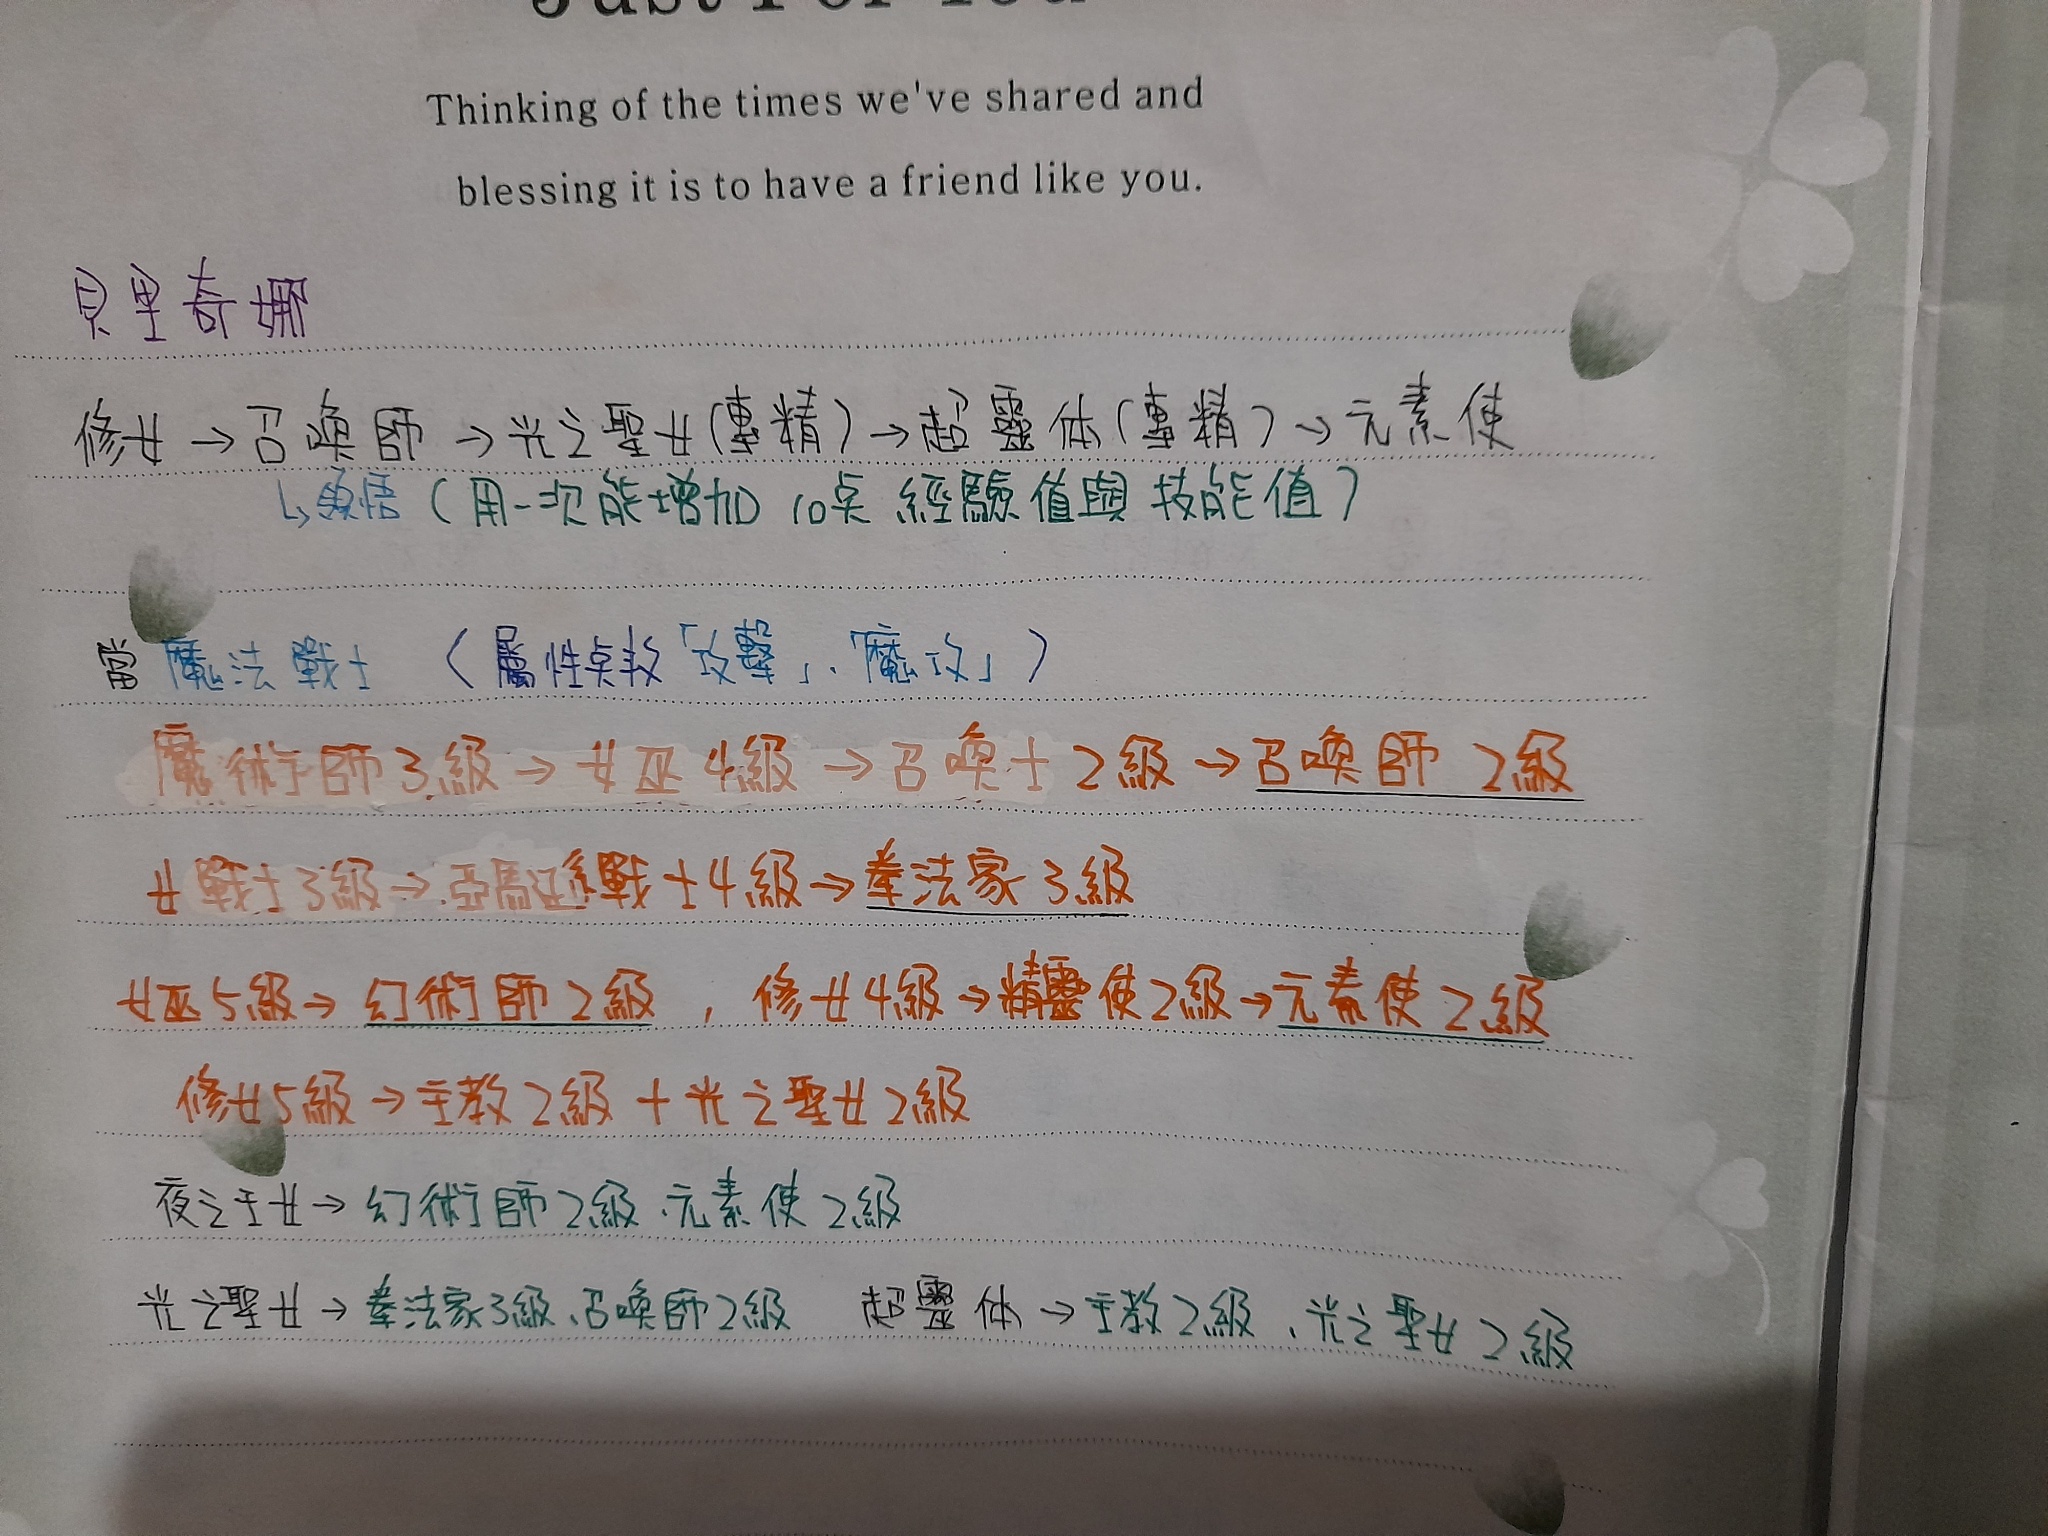 Just For You
Thinking of the times we've shared and
blessing it is to have a friend like you.
貝里奇娜
修女→召喚師→光之聖女(專精)→超靈体(專精)→元素使
↳領悟(用一次能增加10点經驗值與技能值)
當魔法戰士(屬性点数「攻擊」、「魔攻」)
魔術師3級→女巫4級→召喚士2級→召喚師2級
女戰士3級→亞馬遜戰士4級→拳法家3級
女巫5級→幻術師2級,修女4級→精靈使2級→元素使2級
修女5級→主教2級+光之聖女2級
夜之王女→幻術師2級、元素使2級
光之聖女→拳法家3級、召喚師2級 超靈体→主教2級、光之聖女2級